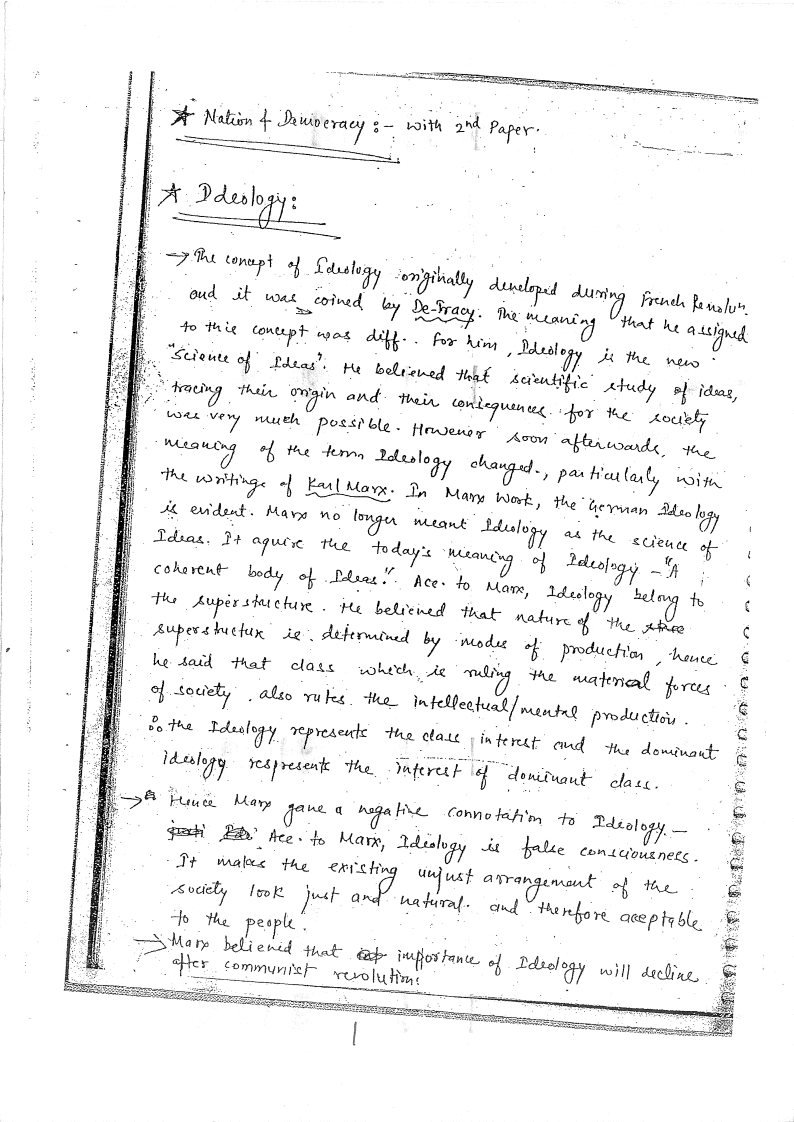 ★ Nation & Democracy :- with 2nd Paper.
★ Ideology:
→ The concept of Ideology originally developed during French Revolun.
and it was coined by De-Tracy. The meaning that he assigned
to this concept was diff.. For him, Ideology is the new
"Science of Ideas". He believed that scientific study of ideas,
tracing their origin and their consequences for the society
was very much possible. However soon afterwards, the
meaning of the term Ideology changed., particularly with
the writings of Karl Marx. In Marx work, the German Ideology
is evident. Marx no longer meant Ideology as the science of
Ideas. It aquire the today's meaning of Ideology - "A
coherent body of Ideas". Acc. to Marx, Ideology belong to
the superstucture. He believed that nature of the
superstuctur is determined by modes of production, hence
he said that class which is ruling the material forces
of society, also rules the intellectual/mental production.
∴ the Ideology represents the class interest and the dominant
ideology respresents the interest of dominant class.
→ Hence Marx gave a negative connotation to Ideology. -
Acc. to Marx, Ideology is false consciousness.
It makes the existing unjust arrangement of the
society look just and natural. and therefore acceptable
to the people.
→ Marx believed that importance of Ideology will decline
after communist revolution:
1